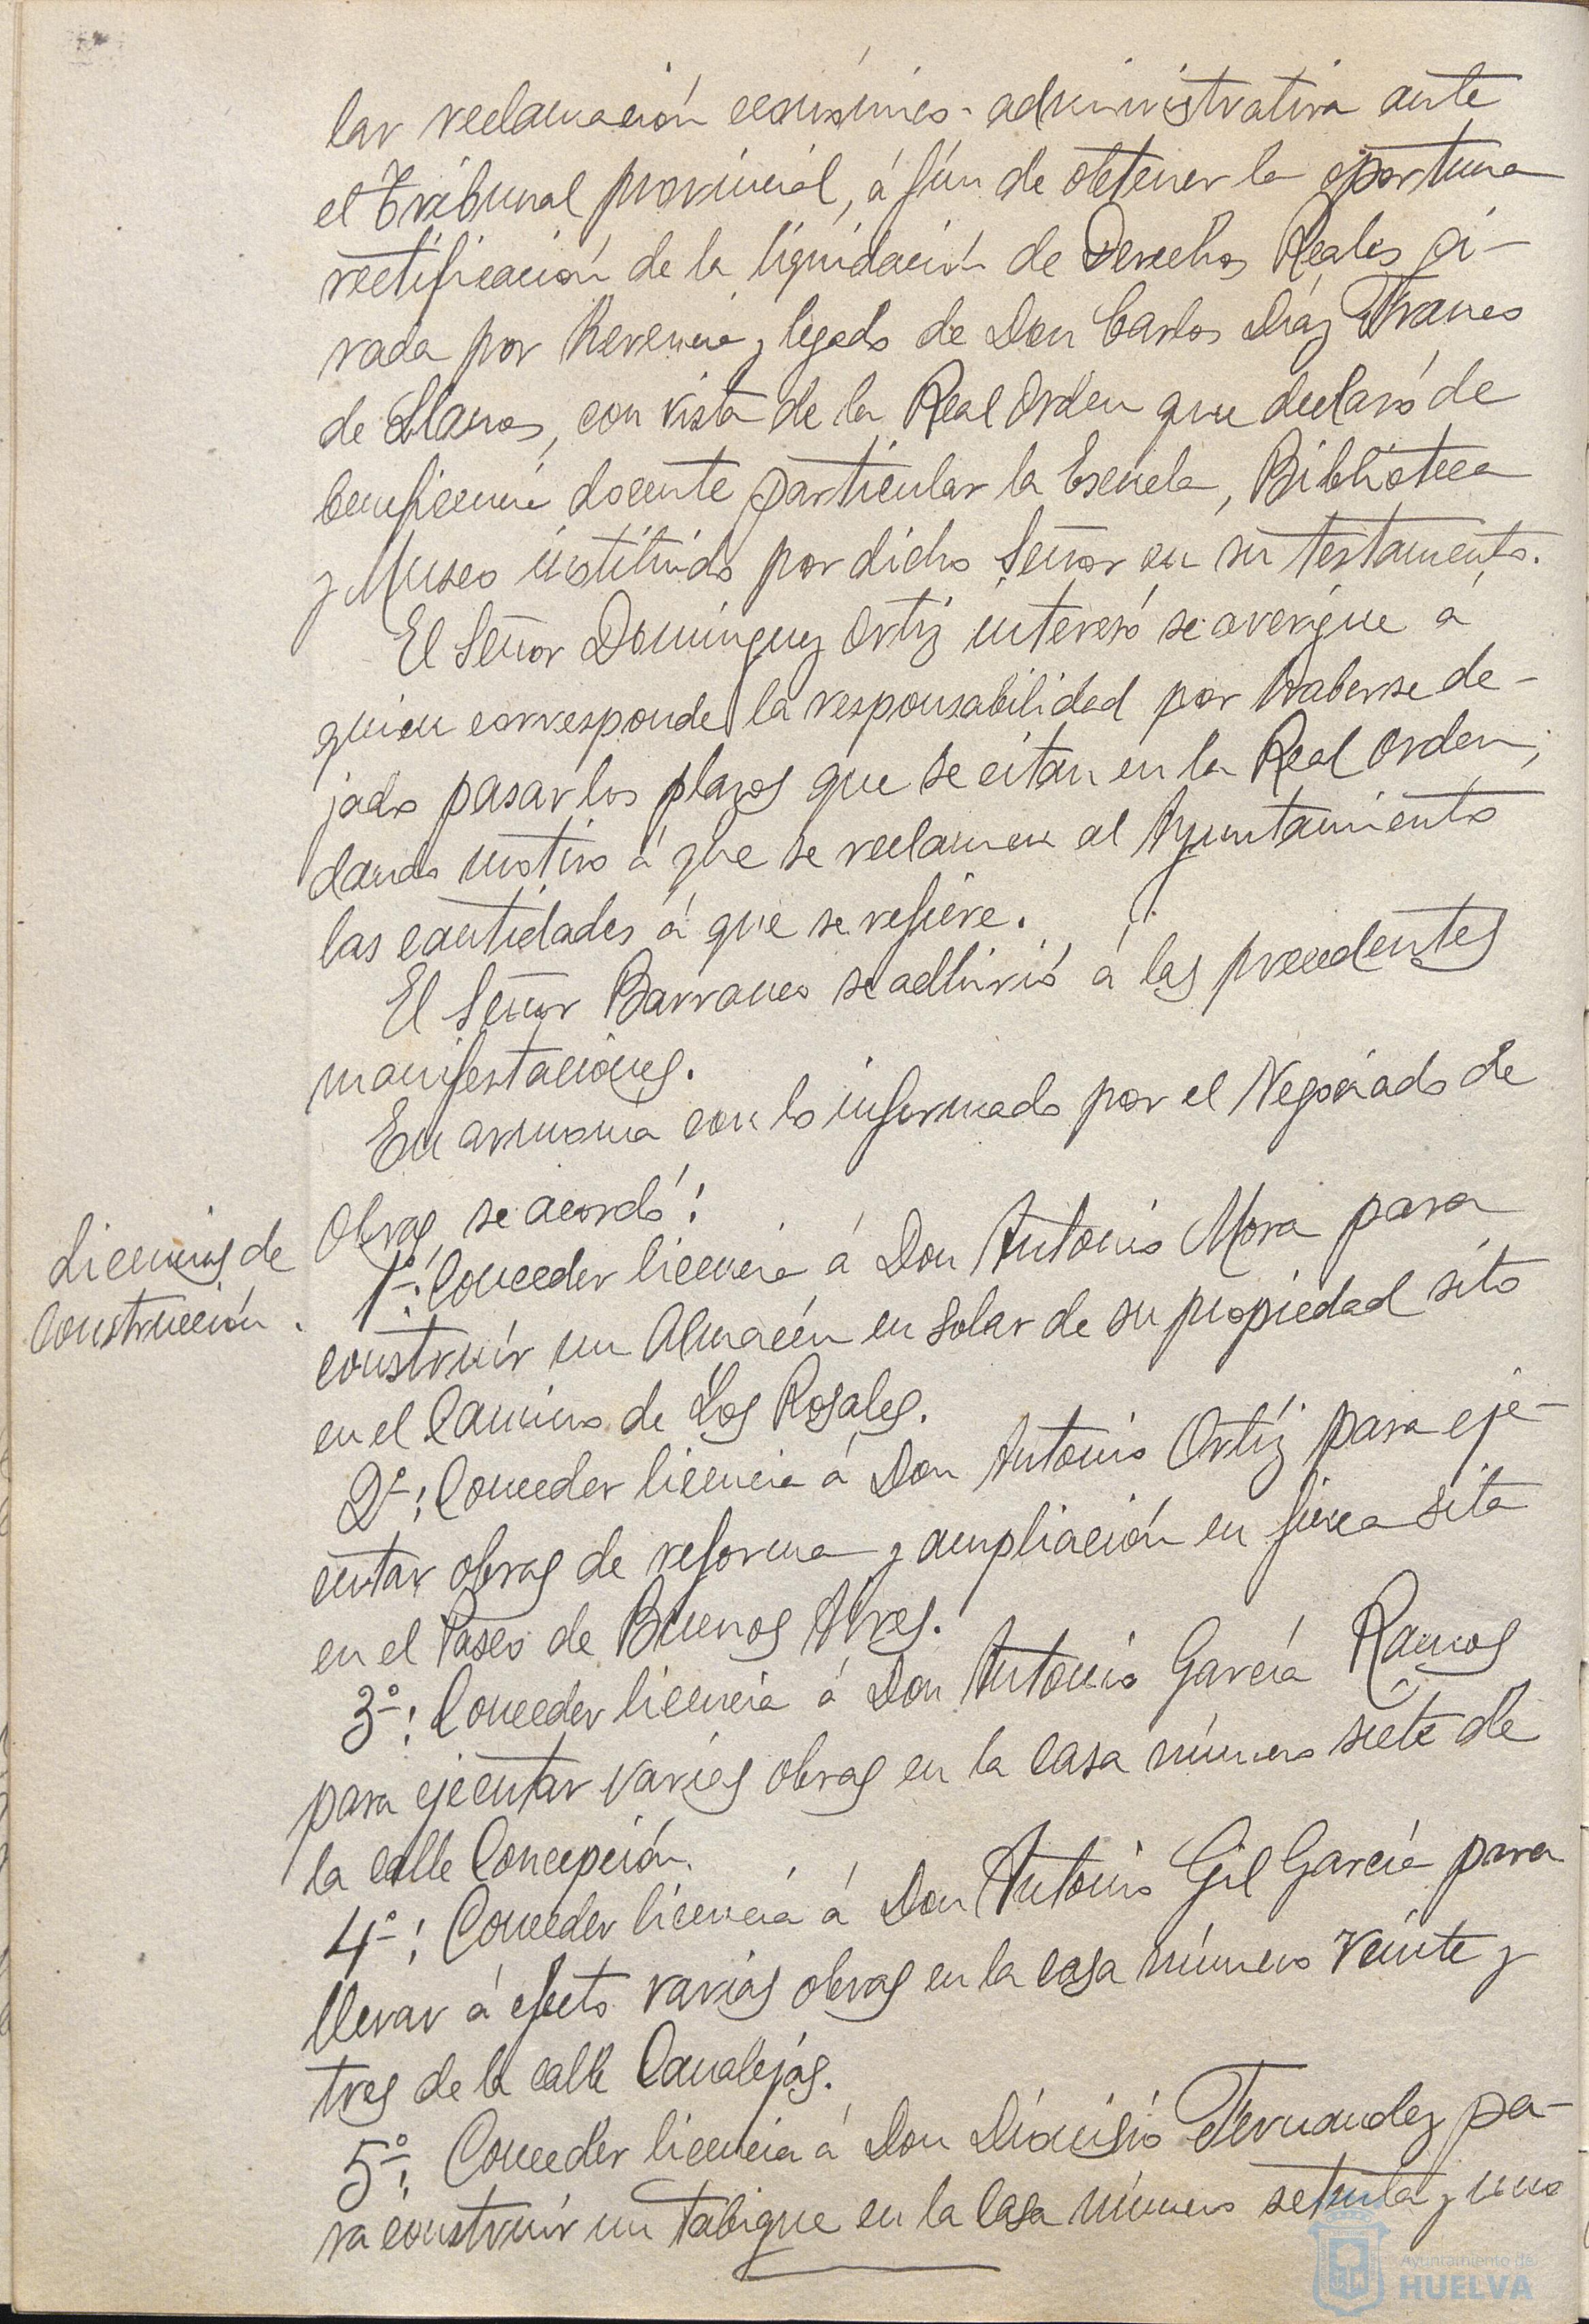 lar reclamación económico-administrativa ante
el Tribunal provincial, á fin de obtener la oportuna
rectificación de la liquidación de Derechos Reales gi-
rada por herencia y legado de Don Carlos Díaz Franco
de Llanos, con vista de la Real Orden que declaró de
beneficencia docente particular la Escuela, Biblioteca
y Museo instituido por dicho Señor en su testamento.
El Señor Domínguez Ortiz interesó se averigüe á
quien corresponde la responsabilidad por haberse de-
jado pasar los plazos que se citan en la Real Orden,
dando motivo á que se reclamen al Ayuntamiento
las cantidades á que se refiere.
El Señor Barranco se adhirió á las precedentes
manifestaciones.
En armonia con lo informado por el Negociado de
Licencias de
construcción.
Obras, se acordó:
1º: Conceder licencia á Don Antonio Mora para
construír un Almacén en solar de su propiedad sito
en el Camino de Los Rosales.
2º: Conceder licencia á Don Antonio Ortíz para eje-
cutar obras de reforma y ampliación en finca sita
en el Paseo de Buenos Aires.
3º: Conceder licencia á Don Antonio García Ramos
para ejecutar varias obras en la casa número siete de
la calle Concepción.
4º: Conceder licencia á Don Antonio Gil García para
llevar á efecto varias obras en la casa número veinte y
tres de la calle Canalejas.
5º: Conceder licencia á Don Dionisio Fernandez pa-
ra construír un tabique en la casa número setenta y uno
Ayuntamiento de
HUELVA